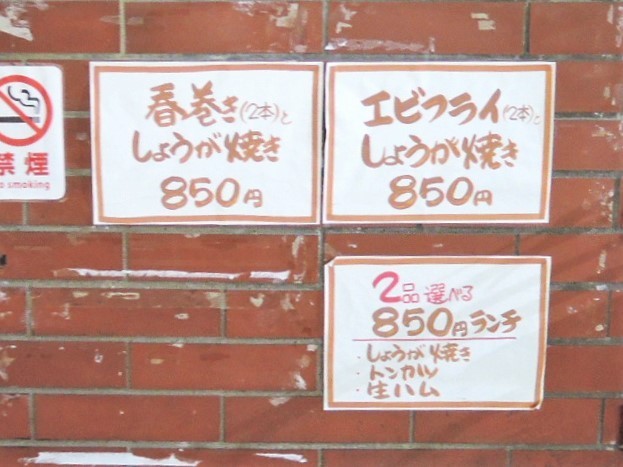 禁煙
o smoking
春巻き(2本)と
しょうが焼き
850円
エビフライ(2本)と
しょうが焼き
850円
2品選べる
850円ランチ
・しょうが焼き
・トンカツ
・生ハム